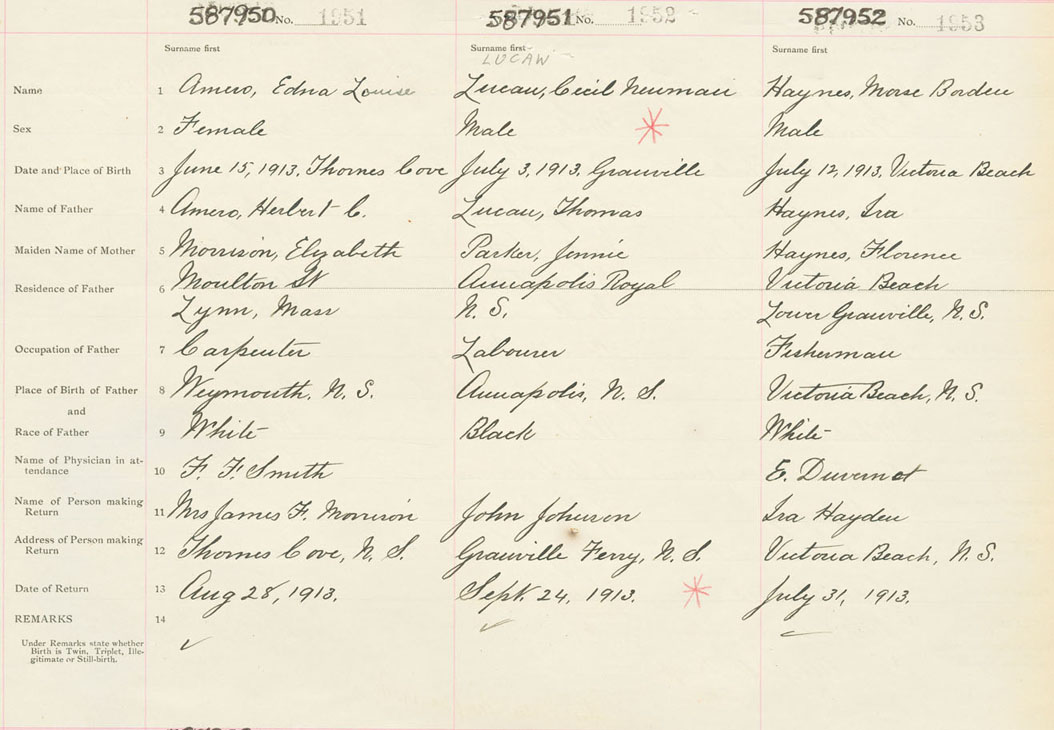 587950 No. 1951 587951 No. 1952 587952 No. 1953
Surname first Surname first Surname first
LUCAW
Name 1 Amero, Edna Louise Lucau, Cecil Neuman Haynes, Morse Borden
Sex 2 Female Male Male
Date and Place of Birth 3 June 15, 1913, Thornes Cove July 3, 1913, Granville July 12, 1913, Victoria Beach
Name of Father 4 Amero, Herbert C. Lucau, Thomas Haynes, Ira
Maiden Name of Mother 5 Morrison, Elizabeth Parker, Jennie Haynes, Florence
Residence of Father 6 Moulton St Annapolis Royal Victoria Beach
Lynn, Mass N. S. Lower Granville, N. S.
Occupation of Father 7 Carpenter Labourer Fisherman
Place of Birth of Father 8 Weymouth, N. S. Annapolis, N. S. Victoria Beach, N. S.
and
Race of Father 9 White Black White
Name of Physician in at-
tendance 10 F. F. Smith E. Duvernet
Name of Person making
Return 11 Mrs James F. Morrison John Johnson Ira Hayden
Address of Person making
Return 12 Thornes Cove, N. S. Granville Ferry, N. S. Victoria Beach, N. S.
Date of Return 13 Aug 28, 1913. Sept. 24, 1913. July 31, 1913.
REMARKS 14
Under Remarks state whether
Birth is Twin, Triplet, Ille-
gitimate or Still-birth.